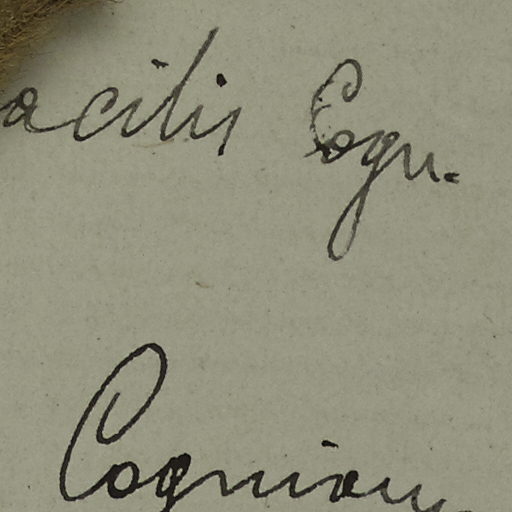 acilis Cogn.
Cogniau